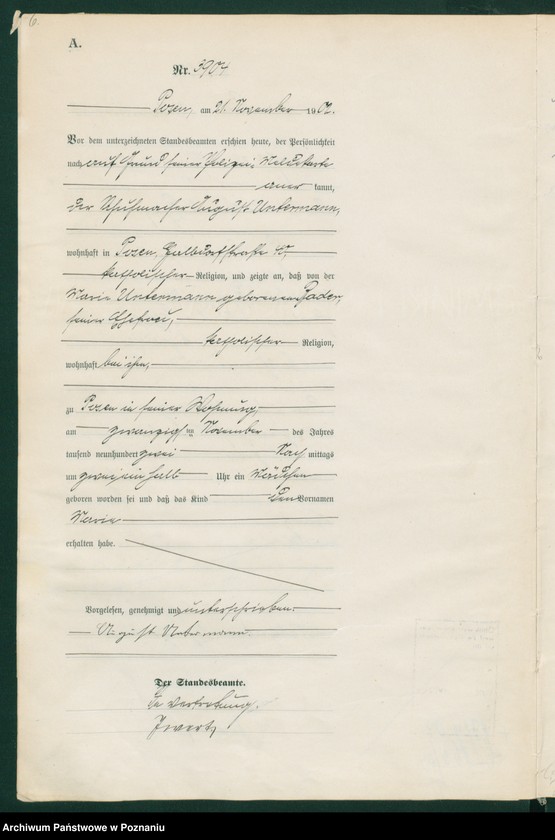 6.
A.
Nr. 3904
Posen, am 21. November 1902.
Vor dem unterzeichneten Standesbeamten erschien heute, der Persönlichkeit
nach auf Grund seiner Polizei-Meldekarte
aner kannt,
der Schuhmacher August Untermann,
wohnhaft in Posen,
katholischer Religion, und zeigte an, daß von der
Marie Untermann geborenen Bader,
seiner Ehefrau,
katholischer Religion,
wohnhaft bei ihm,
zu Posen in seiner Wohnung,
am zwanzigsten November des Jahres
tausend neunhundert zwei Nach mittags
um zweieinhalb Uhr ein Mädchen
geboren worden sei und daß das Kind den Vornamen
Marie
erhalten habe.
Vorgelesen, genehmigt und unterschrieben.
August
Der Standesbeamte.
In Vertretung.
Archiwum Państwowe w Poznaniu